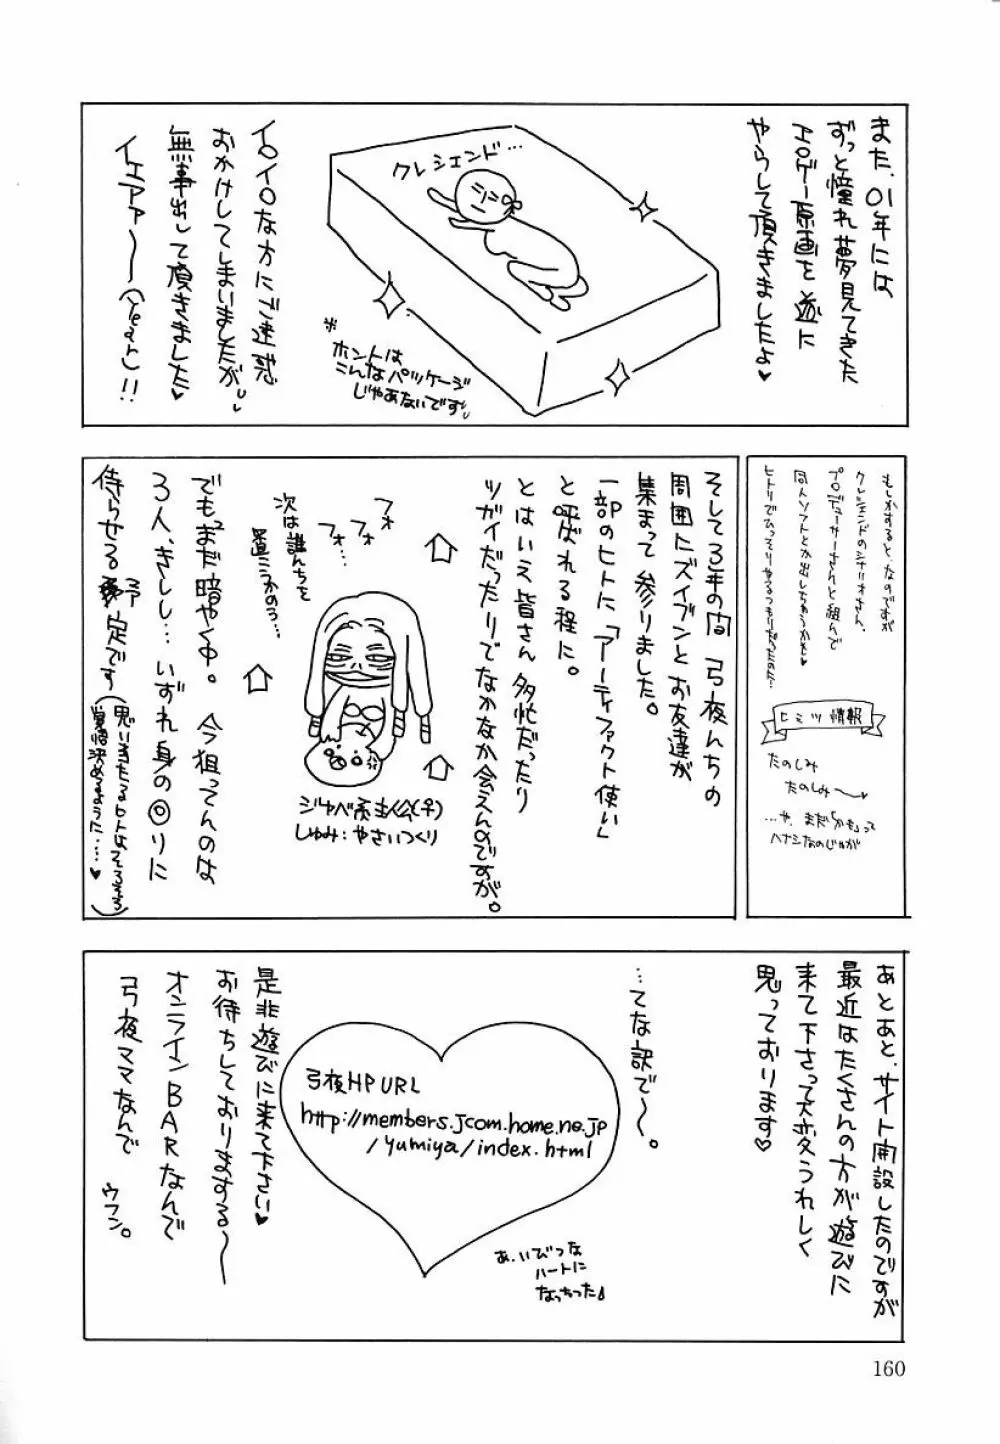 また、01年には
ずっと憧れ夢見てきた
エロゲー原画を遂に
やらして頂きましたよ♥
クレシェンド…
※
ホントは
こんなパッケージ
じゃあないです
イロイロな方にご迷惑
おかけしてしまいましたが
無事出して頂きました♥
イェアァ〜(Yeah)!!
もしかすると、なのですが
クレシェンドのシナリオさん、
プロデューサーさんと組んで
同人ソフトとか出しちゃうかも♥
ヒミツ情報
たのしみ
たのしみ〜♥
…や、まだ「かも」って
ハナシなのじゃが
そして3年の間 弓夜んちの
周囲にズイブンとお友達が
集まって参りました。
一部のヒトに「アーティファクト使い」
と呼ばれる程に。
とはいえ皆さん多忙だったり
ツガイだったりでなかなか会えんのですが。
フォ
フォ
フォ…
次は誰んちを
置こうかのう…
しゅみ:やさいつくり
でもまだ暗やく中。今狙ってんのは
3人、きしし…いずれ身の◎りに
侍らせる予定です
(思い当たるヒトはそろそろ
覚悟決めるように…♥)
あとあと、サイト開設したのですが
最近はたくさんの方が遊びに
来て下さって大変うれしく
思っております♡
…てな訳で〜。
弓夜HP URL
http://members.jcom.home.ne.jp
/yumiya/index.html
あ、いびつな
ハートに
なっちった
是非遊びに来て下さい♥
お待ちしておりまする〜
オンラインBARなんで
弓夜ママなんで
ウフン。
160